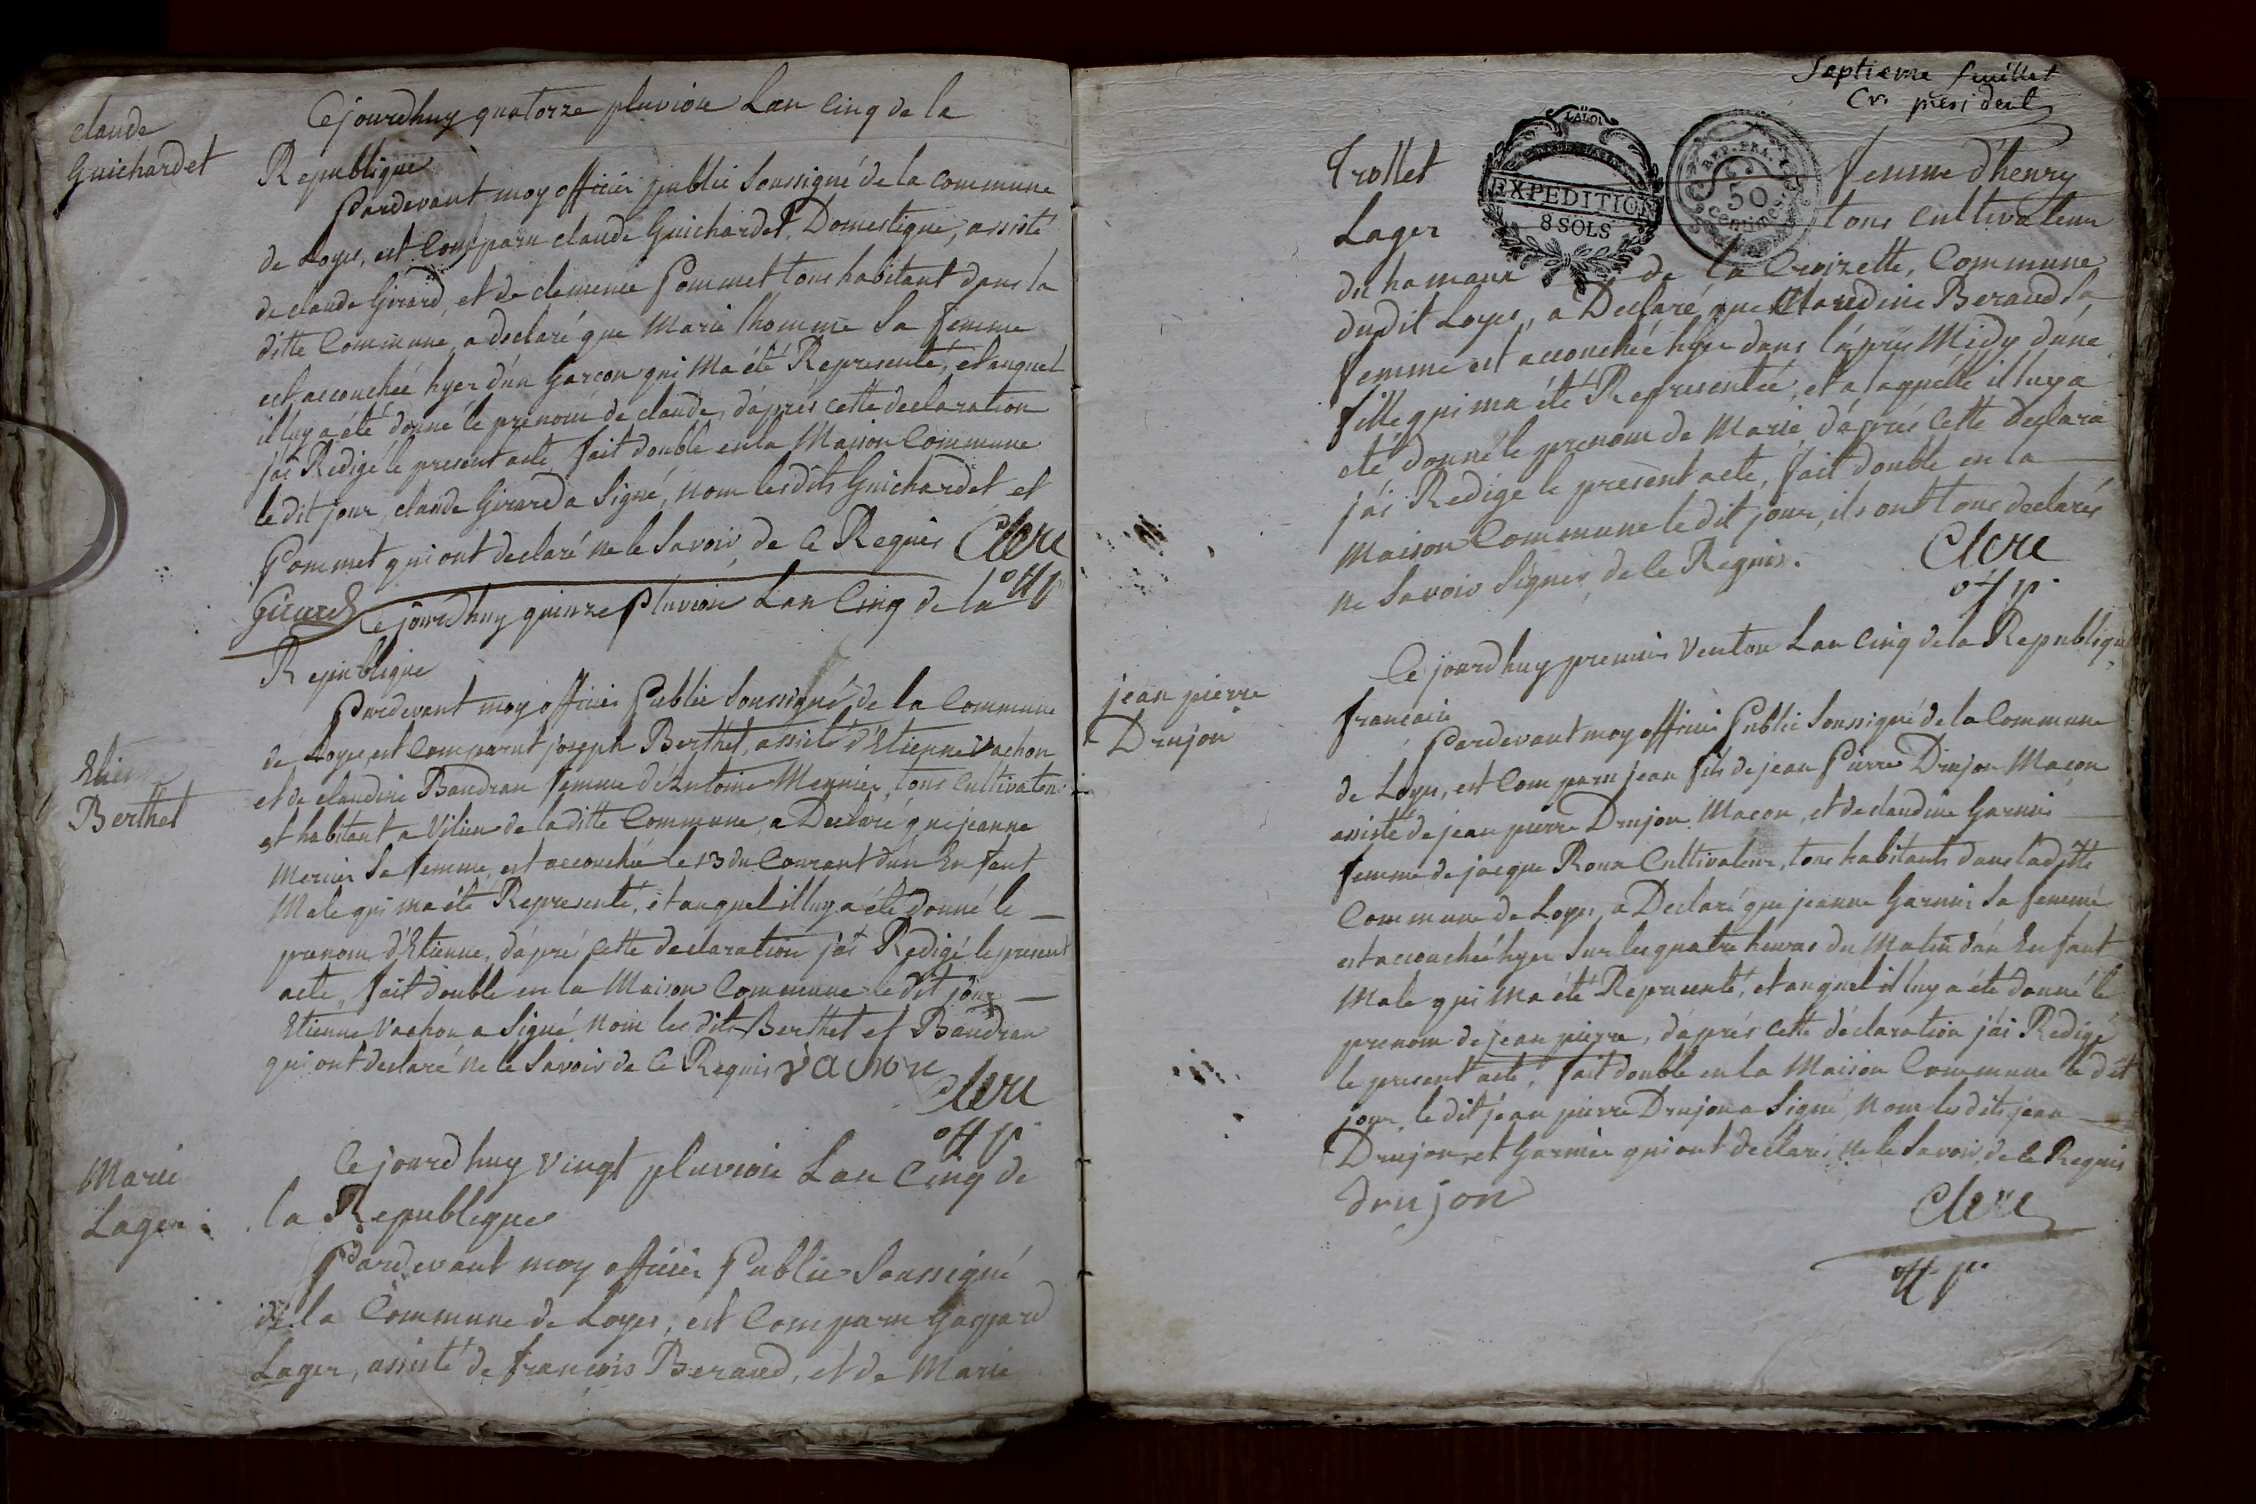 claude
Guichardet
Cejourdhuy quatorze pluviose Lan Cinq de la
Republique
Pardevant moy officier public Soussigné de la Commune
de Loyes, est Comparu claude Guichardet, Domestique, assisté
de claude Girard, et de clemence Pommet tous habitant dans la
ditte Commune, a declaré que Marie lhomme Sa femme
est accouchée hyer d'un Garcon qui Ma été Representé, et auquel
il luy a été donné le prenom de claude, d'aprés cette declaration
j'ai Redigé le present acte, fait double en la Maison Commune
le dit jour, claude Girard a Signé, Nom lesdits Guichardet et
Pommet qui ont declaré ne le Savoir, de Ce Requis Clerc
off p
Girard
Cejourdhuy quinze Pluviose Lan Cinq de la
Republique
Berthet
Pardevant moy officier Public Soussigné de la Commune
de Loyes est Comparut joseph Berthet, assisté d'Etienne Vachon
et de claudine Baudran femme d'Antoine Mennier, tous Cultivateurs
et habitant a Vilieu de laditte Commune, a Declaré que jeanne
Mercier Sa femme, est accouchée le 13 du Courant d'un Enfant
Male qui ma été Representé, et auquel il luy a été donné le
prenom d'Etienne, d'apré cette declaration j'ai Redigé le present
acte, fait double en la Maison Commune le dit jour
Etienne Vachon a Signé, Nom les dits Berthet et Baudran
qui ont declaré ne le Savoir de Ce Requis vachon
Clerc
off p.
Marie
Lager
Cejourdhuy vingt pluviose Lan Cinq de
la Republique
Pardevant moy officier Public Soussigné
de la Commune de Loyes, est Comparu Gaspard
Lager, assisté de françois Beraud, et de Marie
Septieme feuillet
president
Trollet
LA LOI
EXPEDITION
8 SOLS
REP. FRA.
50
centimes
femme d'henry
Lager tous cultivateur
du hamaux de la Croizette, Commune
dudit Loyes, a Declaré que Claudine Beraud Sa
femme est accouchée hyer dans l'aprés Midy d'une
fille qui ma été Representée, et a laquelle il luy a
été donné le prenom de Marie, d'aprés Cette declara
j'ai Redigé le present acte, fait double en la
Maison Commune le dit jour, ils ont tous declarés
ne Savoir Signer, de Ce Requis.
Clerc
off p.
jean pierre
Drujon
Cejourdhuy premier Ventose Lan Cinq de la Republique
francaise
Pardevant moy officier Public Soussigné de la Commune
de Loyes, est Comparu jean fils de jean Pierre Drujon Macon
assisté de jean pierre Drujon Macon, et de claudine Garnier
femme de jacque Roux Cultivateur, tous habitants dans ladite
Commune de Loyes, a Declaré que jeanne Garnier Sa femme
est accouchée hyer Sur les quatre heures du Matin d'un Enfant
Male qui Ma été Representé, et auquel il luy a été donné le
prenom de jean pierre, d'aprés cette déclaration j'ai Redigé
le present acte, fait double en la Maison Commune le dit
jour, le dit jean pierre Drujon a Signé, Nom les dits jean
Drujon, et Garnier qui ont declaré ne le Savoir, de Ce Requis
drujon
Clerc
off p.